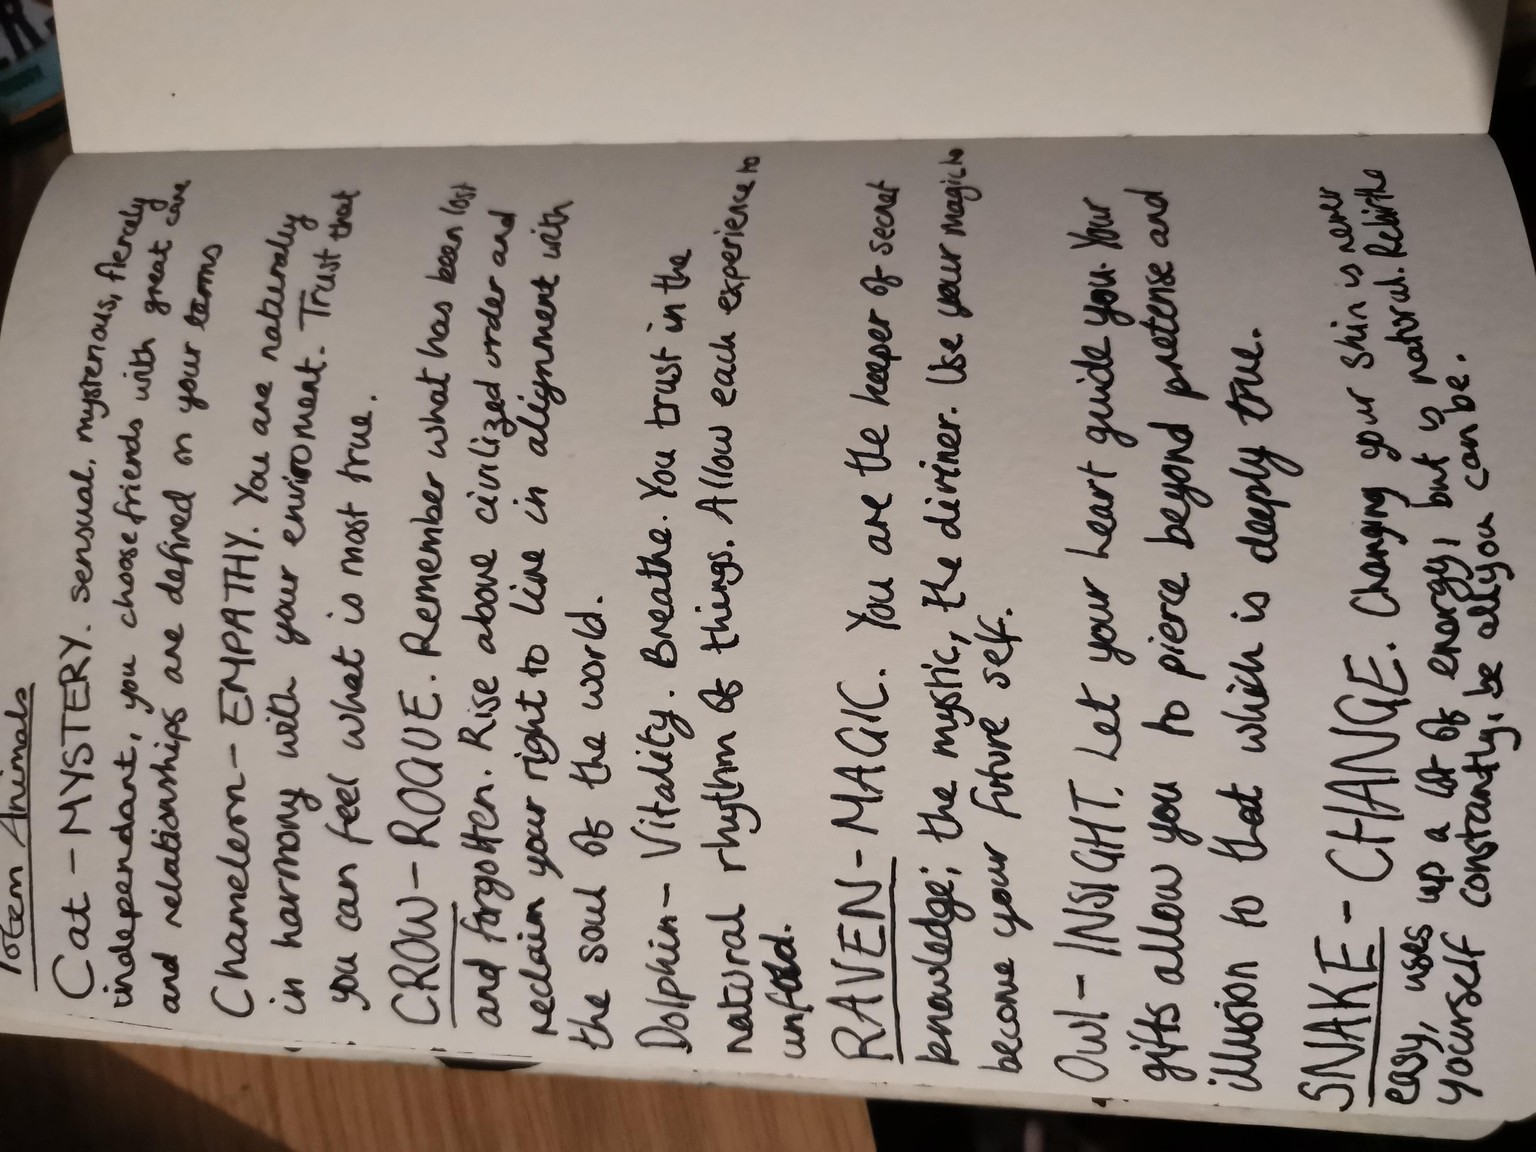 Totem Animals
Cat - MYSTERY. sensual, mysterious, fiercely
independant, you choose friends with great care
and relationships are defined on your terms
Chameleon - EMPATHY. You are naturally
in harmony with your environment. Trust that
you can feel what is most true.
CROW - ROGUE. Remember what has been lost
and forgotten. Rise above civilized order and
reclaim your right to live in alignment with
the soul of the world.
Dolphin - Vitality. Breathe. You trust in the
natural rhythm of things. Allow each experience to
unfold.
RAVEN - MAGIC. You are the keeper of secret
knowledge; the mystic, the diviner. Use your magic to
become your future self.
Owl - INSIGHT. Let your heart guide you. Your
gifts allow you to pierce beyond pretense and
illusion to that which is deeply true.
SNAKE - CHANGE. Changing your skin is never
easy, uses up a lot of energy, but is natural. Rebirthe
yourself constantly, be all you can be.